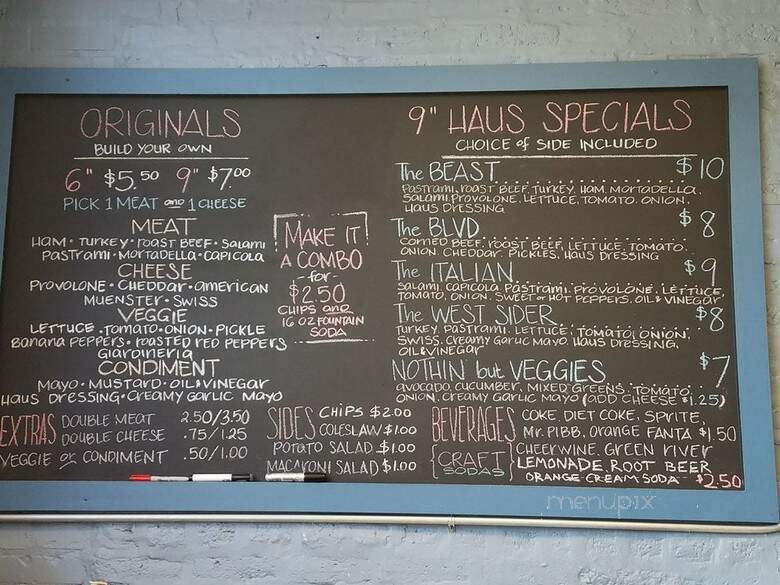 ORIGINALS
BUILD YOUR OWN
6" $5.50 9" $7.00
PICK 1 MEAT AND 1 CHEESE
MEAT
HAM • TURKEY • ROAST BEEF • SALAMI
PASTRAMI • MORTADELLA • CAPICOLA
CHEESE
PROVOLONE • CHEDDAR • AMERICAN
MUENSTER • SWISS
VEGGIE
LETTUCE • TOMATO • ONION • PICKLE
BANANA PEPPERS • ROASTED RED PEPPERS
GIARDINERIA
CONDIMENT
MAYO • MUSTARD • OIL & VINEGAR
HAUS DRESSING • CREAMY GARLIC MAYO
MAKE IT
A COMBO
-for-
$2.50
CHIPS AND
16 OZ FOUNTAIN
SODA
9" HAUS SPECIALS
CHOICE of SIDE INCLUDED
The BEAST $10
PASTRAMI, ROAST BEEF, TURKEY, HAM, MORTADELLA,
SALAMI, PROVOLONE, LETTUCE, TOMATO, ONION,
HAUS DRESSING
The BLVD $8
CORNED BEEF, ROAST BEEF, LETTUCE, TOMATO,
ONION, CHEDDAR, PICKLES, HAUS DRESSING
The ITALIAN $9
SALAMI, CAPICOLA, PASTRAMI, PROVOLONE, LETTUCE,
TOMATO, ONION, SWEET or HOT PEPPERS, OIL & VINEGAR
The WEST SIDER $8
TURKEY, PASTRAMI, LETTUCE, TOMATO, ONION,
SWISS, CREAMY GARLIC MAYO, HAUS DRESSING,
OIL & VINEGAR
NOTHIN but VEGGIES $7
AVOCADO, CUCUMBER, MIXED GREENS, TOMATO,
ONION, CREAMY GARLIC MAYO (ADD CHEESE $1.25)
EXTRAS
DOUBLE MEAT 2.50/3.50
DOUBLE CHEESE .75/1.25
VEGGIE or CONDIMENT .50/1.00
SIDES
CHIPS $2.00
COLESLAW $1.00
POTATO SALAD $1.00
MACARONI SALAD $1.00
BEVERAGES
COKE, DIET COKE, SPRITE,
MR. PIBB, ORANGE FANTA $1.50
{CRAFT SODAS}
CHEERWINE, GREEN RIVER
LEMONADE, ROOT BEER
ORANGE CREAM SODA $2.50
menupix